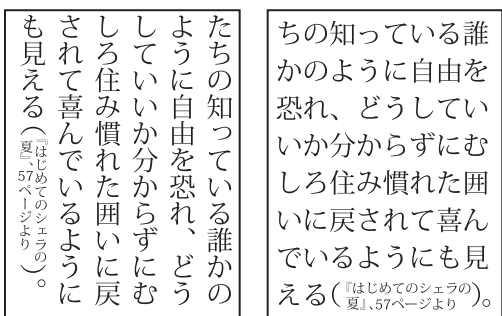 たちの知っている誰かの
ように自由を恐れ、どう
していいか分からずにむ
しろ住み慣れた囲いに戻
されて喜んでいるように
も見える(『はじめてのシェラの夏』、57ページより)。
ちの知っている誰
かのように自由を
恐れ、どうしてい
いか分からずにむ
しろ住み慣れた囲
いに戻されて喜ん
でいるようにも見
える(『はじめてのシェラの夏』、57ページより)。